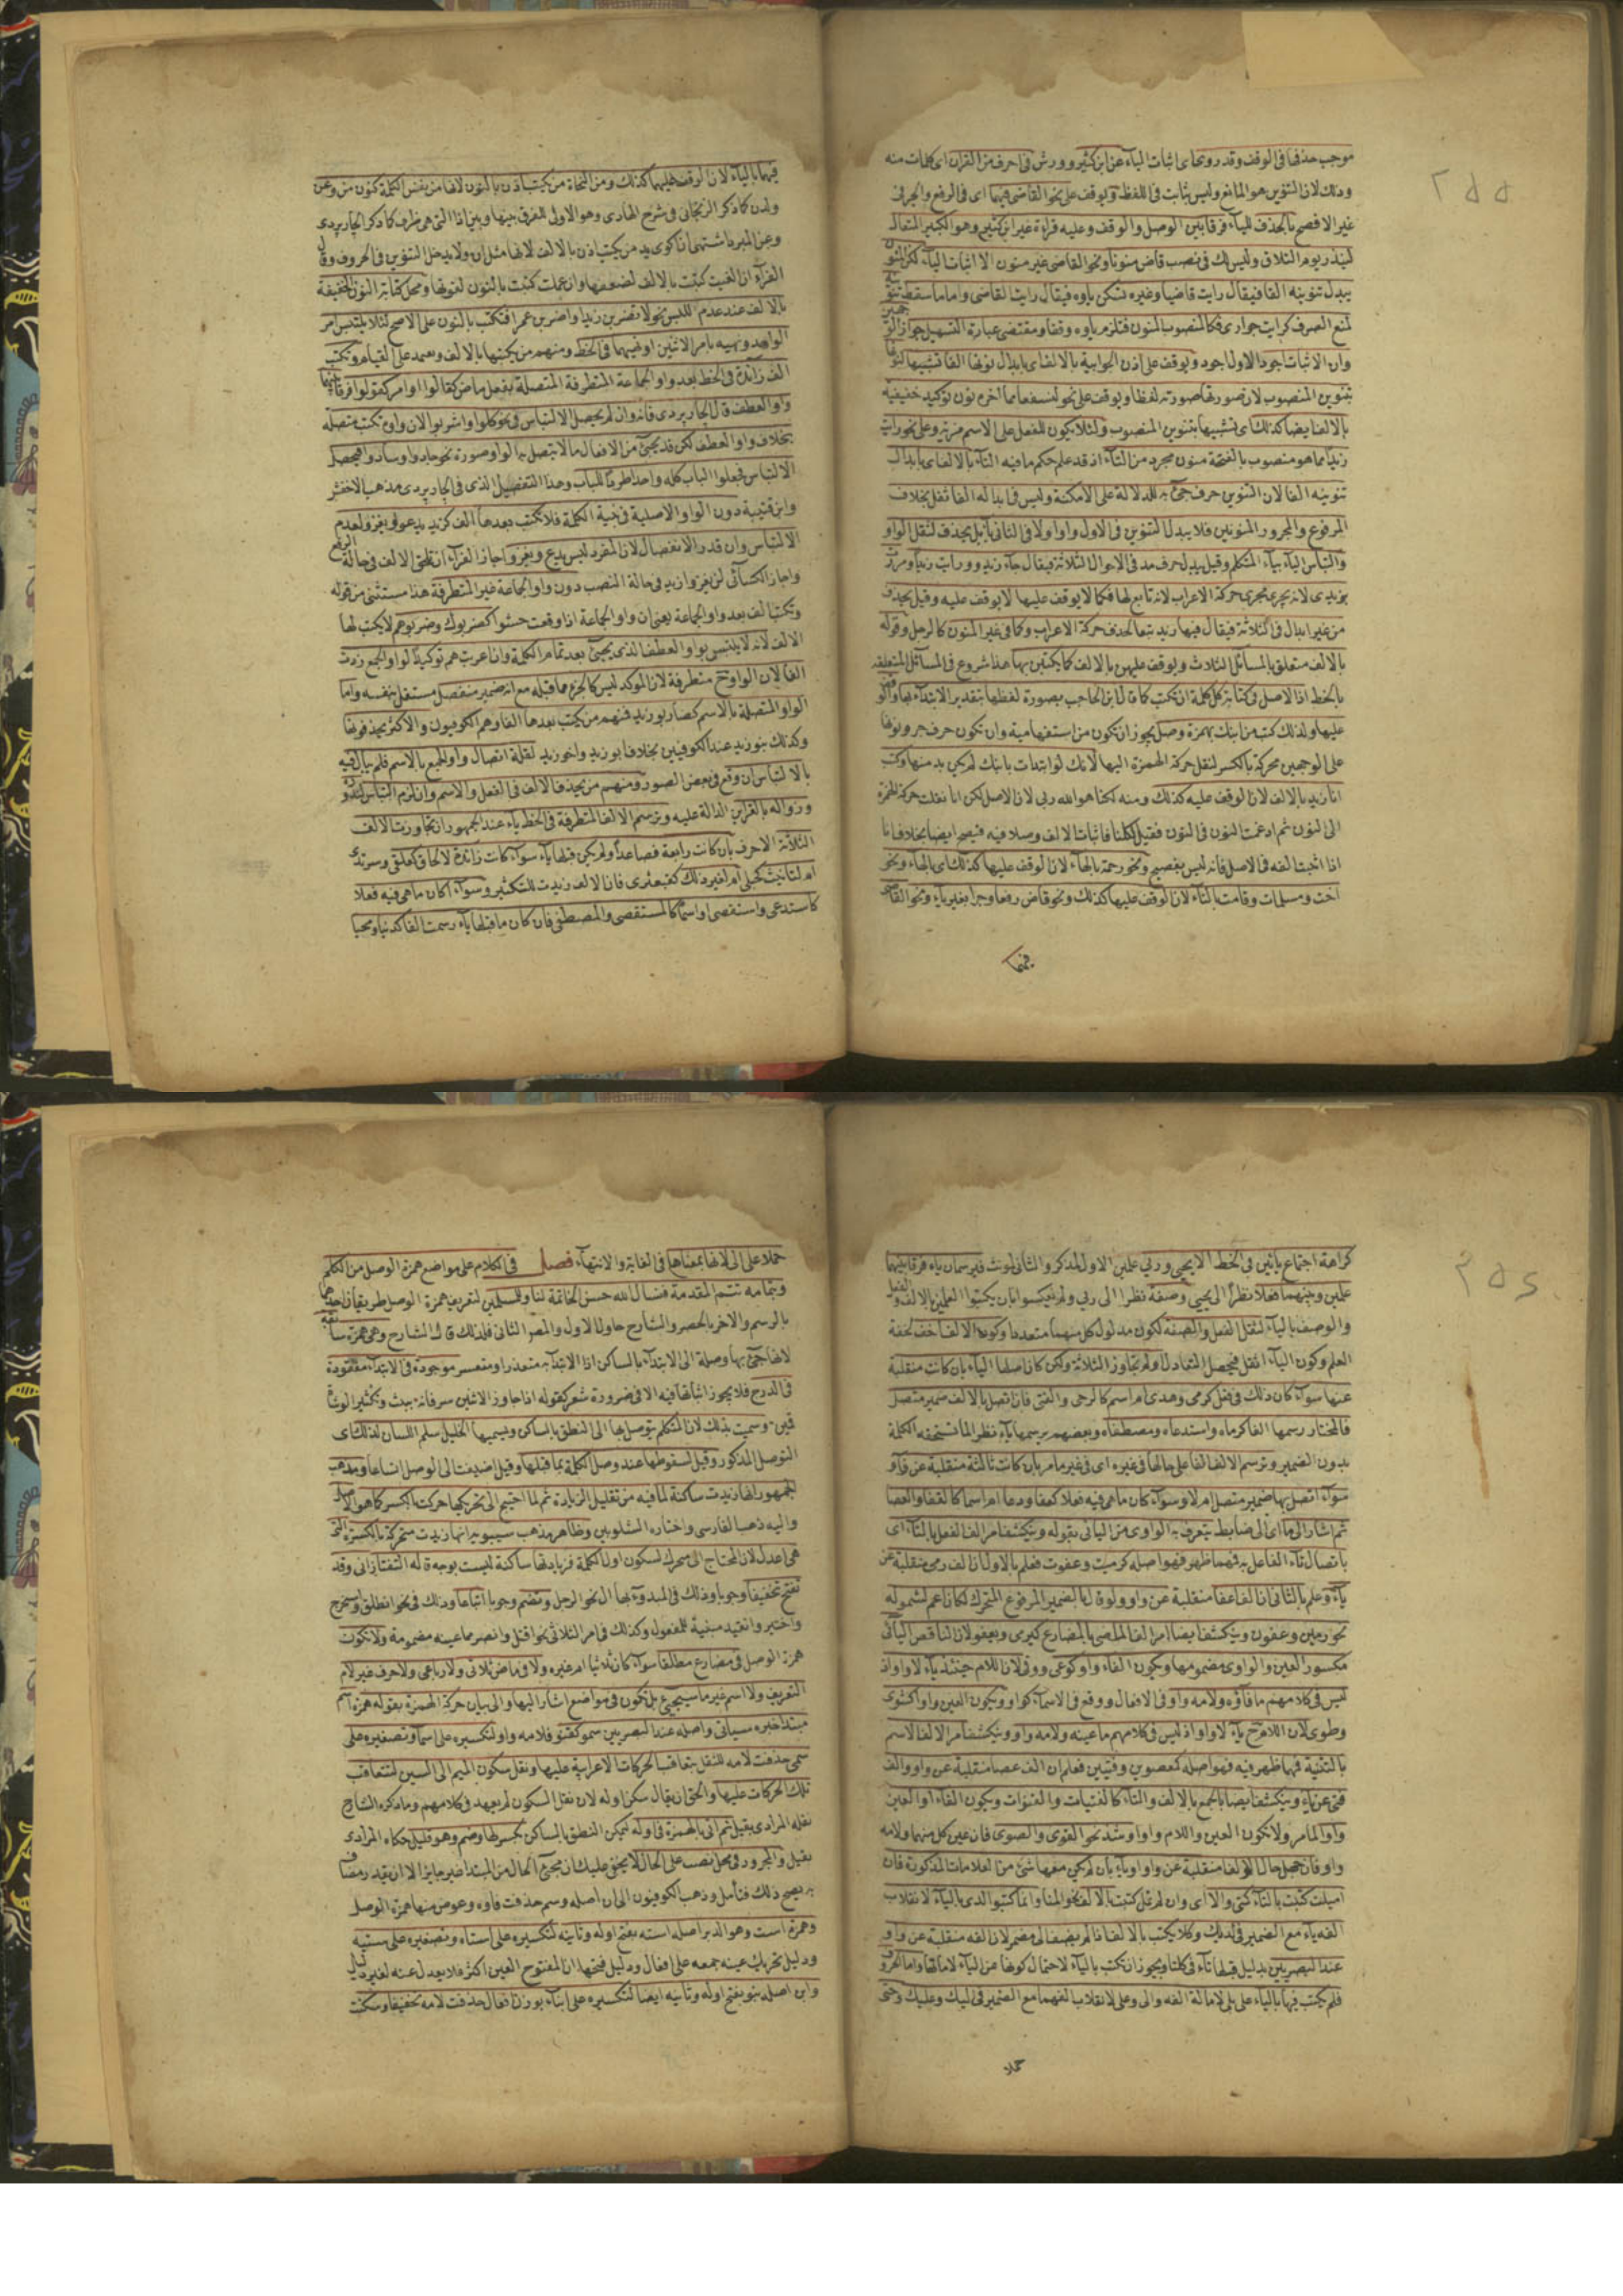 موجب حذفها فى الوقف وقد روى اثبات الياء عن ابن كثير وورش فى احرف من القران اى كلمات منه
وذلك لان التنوين هو المانع وليس بثابت فى اللفظ ويوقف على نحو القاضى فيهما اى فى الرفع والجر فى
غير الافصح بالحذف للياء فرقا بين الوصل والوقف وعليه قراءة غير ابن كثير وهو الكبير المتعال
لينذر يوم التلاق وليس لك فى نصب قاض منونا ونحو القاضى غير منون الا اثبات الياء لكن المنون
يبدل تنوينه الفا فيقال رايت قاضيا وغيره تسكن ياؤه فيقال رايت القاضى واما ما سقط تنوينه
لمنع الصرف كرايت جوارى فكالمنصوب المنون فتلزم ياؤه وقفا ومقتضى عبارة التسهيل جواز الوجهين
وان الاثبات جود الاول اجود ويوقف على اذن الجوابية بالالف اى بابدال نونها الفا تشبيها لنونها
بتنوين المنصوب لان صورتها صورته لفظا ويوقف على نحو لنسفعا مما اخره نون توكيد خفيفة
بالالف ايضا كذلك اى تشبيها بتنوين المنصوب ولئلا يكون للفعل على الاسم مزية وعلى نحو رايت
زيدا مما هو منصوب بالفتحة منون مجرد من التاء اذ قد علم حكم ما فيه التاء بالالف اى بابدال
تنوينه الفا لان التنوين حرف جئ به للدلالة على الامكنية وليس فى ابداله الفا ثقل بخلاف
المرفوع والمجرور المنونين فلا يبدل التنوين فى الاول واوا ولا فى الثانى ياء بل يحذف لثقل الواو
والتباس الياء بياء المتكلم وقيل يبدل حرف مد فى الاحوال الثلاثة فيقال جاء زيدو ورايت زيدا ومررت
بزيدى لانه يجرى مجرى حركة الاعراب لانه تابع لها فكما لا يوقف عليها لا يوقف عليه وقيل يحذف
من غير ابدال فى الثلاثة فيقال فيها زيد تبعا لحذف حركة الاعراب وكما فى غير المنون كالرجل وقوله
بالالف متعلق بالمسائل الثلاث ويوقف عليهن بالالف كما يكتبن بها هذا شروع فى المسائل المتعلقة
بالخط اذ الاصل فى كتابة كل كلمة ان تكتب كما قال ابن الحاجب بصورة لفظها بتقدير الابتداء بها والوقف
عليها ولذلك كتب من ابنك بهمزة وصل يجوز ان تكون من استفهامية وان تكون حرف جر ونونها
على الوجهين محركة بالكسر لنقل حركة الهمزة اليها لانك لو ابتدات بابنك لم يكن بد منها وكتب
انا زيد بالالف لان الوقف عليه كذلك ومنه لكنا هو الله ربى لان الاصل لكن انا نقلت حركة الهمزة
الى النون ثم ادغمت النون فى النون فقيل لكنا فاثبات الالف وصلا فيه فصيح ايضا بخلاف انا
اذا اثبت الفه فى الاصل فانه ليس بفصيح ونحو رحمة بالهاء لان الوقف عليها كذلك اى بالهاء ونحو
اخت ومسلمات وقامت بالتاء لان الوقف عليها كذلك ونحو قاض رفعا وجرا بغير ياء ونحو القاضى
فيهما
فيهما بالياء لان الوقف عليهما كذلك ومن النحاة من يكتب اذن بالنون لانها من نفس الكلمة كنون من وعن
ولدن كما ذكر الزنجانى فى شرح الهادى وهو الاولى للفرق بينها وبين اذا التى هى ظرف كما ذكر الجاربردى
وعن المبرد اشتهى ان اكوى يد من يكتب اذن بالالف لانها مثل ان ولا يدخل التنوين فى الحروف وقال
الفراء ان الغيت كتبت بالالف لضعفها وان عملت كتبت بالنون لقوتها ومحل كتابة النون الخفيفة
بالالف عند عدم اللبس نحو لا تضربن زيدا واضربن عمرا فتكتب بالنون على الاصح لئلا يلتبس امر
الواحد ونهيه بامر الاثنين او نهيهما فى الخط ومنهم من يكتبها بالالف ويعمد على القياس وتكتب
الف زائدة فى الخط بعد واو الجماعة المتطرفة المتصلة بفعل ماض كقالوا او امر كقولوا فرقا بينها
واو العطف قال الجاربردى فانه وان لم يحصل الالتباس فى نحو كلوا واشربوا الان واوه تكتب متصلة
بخلاف واو العطف لكن قد يجئ من الافعال ما لا يتصل به الواو صورة نحو جادوا وسادوا فيحصل
الالتباس فجعلوا الباب كله واحدا طردا للباب وهذا التفصيل الذى فى الجاربردى مذهب الاخفش
وابن قتيبة دون الواو الاصلية فى بنية الكلمة فلا تكتب بعدها الف كزيد يدعو او يغزو لعدم
الالتباس وان قدر الانفصال لان المفرد ليس يدع ويغز واجاز الفراء ان تلحق الالف فى حالة الرفع
واجاز الكسائى لن يغزوا زيد فى حالة النصب دون واو الجماعة غير المتطرفة هذا مستثنى من قوله
وتكتب الف بعد واو الجماعة يعنى ان واو الجماعة اذا وقعت حشوا كضربوك وضربوهم لا يكتب لها
الالف لانه لا يلتبس بواو العطف الذى يجئ بعد تمام الكلمة وان اعربت هم توكيدا لواو الجمع زدت
الفا لان الواو ح متطرفة لان الموكد ليس كالجزء مما قبله مع انه ضمير منفصل مستقل بنفسه واما
الواو المتصلة بالاسم كضاربو زيد فمنهم من يكتب بعدها الفا وهم الكوفيون والاكثر يحذفونها
وكذلك بنو زيد عند الكوفيين بخلاف ابو زيد واخو زيد لقلة اتصال واو الجمع بالاسم فلم يبال فيه
بالالتباس ان وقع فى بعض الصور ومنهم من يحذف الالف فى الفعل والاسم وان لزم التباس لندوره
وزواله بالقراين الدالة عليه وترسم الالف المتطرفة فى الخط ياء عند الجمهور ان تجاوزت الالف
الثلاثة الاحرف بان كانت رابعة فصاعدا ولم يكن قبلها ياء سواء كانت زائدة لالحاق كعلقى وسرندى
ام لتانيث كحبلى ام لغير ذلك كقبعثرى فان الالف زيدت للتكثير وسواء اكان ما هى فيه فعلا
كاستدعى واستقصى او اسما كالمستقصى والمصطفى فان كان ما قبلها ياء رسمت الفا كدنيا ومحيا
كراهة اجتماع يائين فى الخط الا يحيى وريى علمين الاول لمذكر والثانى لمونث فيرسمان ياء فرقا بينهما
علمين وبينهما فعلا نظرا الى يحيى وصفة نظرا الى ريى ولم يعكسوا بان يكتبوا العلمين بالالف والفعل
والوصف بالياء لثقل الفعل والصفة لكون مدلول كل منهما متعددا وكون الالف اخف لخفة
العلم وكون الياء اثقل فيحصل التعادل او لم تجاوز الثلاثة ولكن كان اصلها الياء بان كانت منقلبة
عنها سواء كان ذلك فى فعل كرمى وهدى ام اسم كالرحى والفتى فان اتصل بالالف ضمير متصل
فالمختار رسمها الفا كرماه واستدعاه ومصطفاه وبعضهم يرسمها ياء نظر الما تستحقه الكلمة
بدون الضمير وترسم الالف الفا على حالها فى غيره اى فى غير ما مر بان كانت ثالثة منقلبة عن واو
سواء اتصل بها ضمير متصل ام لا وسواء كان ما هى فيه فعلا كعفا ودعا ام اسما كالقفا والعصا
ثم اشار الى ما اى الى ضابط يتعرف به الواوى من اليائى بقوله وينكشف امر الف الفعل بالتاء اى
باتصال تاء الفاعل به فهما ظهر فهو اصله كرميت وعفوت فعلم بالاول ان الف رمى منقلبة عن
ياء وعلم بالثانى ان الف عفا منقلبة عن واو ولو قال بالضمير المرفوع المتحرك لكان اعم لشموله
نحو رمين وعفون وينكشف ايضا امر الف الماضى بالمضارع كيرمى ويعفو لان الناقص اليائى
مكسور العين والواوى مضمومها وبكون الفاء واوا كوعى ووقى لان اللام حينئذ ياء لا واو اذ
ليس فى كلامهم ما فاؤه ولامه واو فى الافعال ووقع فى الاسماء كواو وبكون العين واوا كشوى
وطوى لان اللام ح ياء لا واو اذ ليس فى كلامهم ما عينه ولامه واو وينكشف امر الالف الاسم
بالتثنية فهما ظهر فيه فهو اصله كعصوين وفتيين فعلم ان الف عصا منقلبة عن واو والف
فتى عن ياء وينكشف ايضا بالجمع بالالف والتاء كالفتيات والقنوات وبكون الفاء او العين
واوا لما مر ولا تكون العين واللام واوا وشذ نحو القوى والصوى فان عين كل منهما ولامه
واو فان جهل حال الالف منقلبة عن واو او ياء بان لم يكن معها شئ من العلامات المذكورة فان
اميلت كتبت بالياء كمتى والا اى وان لم تمل كتبت بالالف نحو المنا وانما كتبوا لدى بالياء لانقلاب
الفه ياء مع الضمير فى لديك وكلا يكتب بالالف ان لم يضف الى مضمر لان الفه منقلبة عن واو
عند البصريين بدليل قلبها تاء فى كلتا ويجوز ان تكتب بالياء لاحتمال كونها عن الياء لامالتها واما الحروف
فلم يكتب فيها بالياء على بلى لامالة الفه والى وعلى لانقلاب الفهما مع الضمير فى اليك وعليك وحتى
حملا
حملا على الى لانها بمعناها فى الغاية والانتهاء فصل فى الكلام على مواضع همزة الوصل من الكلم
وبتمامه تتم المقدمة فنسال الله حسن الخاتمة لنا وللمسلمين لتعريف همزة الوصل طريقان احدهما
بالرسم والاخر بالحصر والشارح حاول الاول والمص الثانى فلذلك قال الشارح وهى همزة سابقة
لانها جئ بها وصلة الى الابتداء بالساكن اذ الابتداء به متعذر او متعسر موجودة فى الابتداء مفقودة
فى الدرج فلا يجوز اثباتها فيه الا فى ضرورة شعر كقوله اذا جاوز الاثنين سر فانه ببث وتكثير الوشاة
قمين وسميت بذلك لان المتكلم يتوصل بها الى النطق بالساكن ويسميها الخليل سلم اللسان لذلك اى
التوصل المذكور وقيل لسقوطها عند وصل الكلمة بما قبلها وقيل اضيفت الى الوصل اتساعا ومذهب
الجمهور انها زيدت ساكنة لما فيه من تقليل الزيادة ثم لما احتيج الى تحريكها حركت بالكسر كما هو الاصل
واليه ذهب الفارسى واختاره الشلوبين وظاهر مذهب سيبويه انها زيدت متحركة بالكسرة التى
هى اعدل لانا نحتاج الى متحرك لسكون اول الكلمة فزيادتها ساكنة ليست بوجه قاله التفتازانى وقد
تفتح تخفيفا وجوبا وذلك فى المبدوء بها ال نحو الرجل وتضم وجوبا اتباعا وذلك فى نحو انطلق واستخرج
واختير وانقيد مبنية للمفعول وكذلك فى امر الثلاثى نحو اقتل وانصر مما عينه مضمومة ولا تكون
همزة الوصل فى مضارع مطلقا سواء كان ثلاثيا ام غيره ولا فى ماض ثلاثى ولا رباعى ولا حرف غير لام
التعريف ولا اسم غير ما سيجئ بل تكون فى مواضع اشار اليها والى بيان حركة الهمزة بقوله همزة اسم
مبتدا خبره سياتى واصله عند البصريين سمو كقنو فلامه واو لتكسيره على اسماء وتصغيره على
سمى حذفت لامه للثقل بتعاقب الحركات الاعرابية عليها ونقل سكون الميم الى السين لتتعاقب
تلك الحركات عليها والحق ان يقال سكن اوله لان نقل السكون لم يعهد فى كلامهم وما ذكره الشارح
نقله المرادى بقيل ثم اتى بالهمزة فى اوله ليمكن النطق بالساكن بكسرها وضم وهو قليل حكاه المرادى
بقيل والمجرور فى محل نصب على الحال ولا يخفى عليك ان مجئ الحال من المبتدا غير جايز الا ان يقدر مضاف
به يصح ذلك فتامل وذهب الكوفيون الى ان اصله وسم حذفت فاؤه وعوض منها همزة الوصل
وهمزة است وهو الدبر اصله استه بفتح اوله وثانيه لتكسيره على استاه وتصغيره على ستيه
ودليل تحريك عينه جمعه على افعال ودليل فتحها ان المفتوح العين اكثر فلا يعدل عنه لغير دليل
وابن اصله بنو بفتح اوله وثانيه ايضا لتكسيره على ابناء بوزن افعال حذفت لامه تخفيفا وسكنت